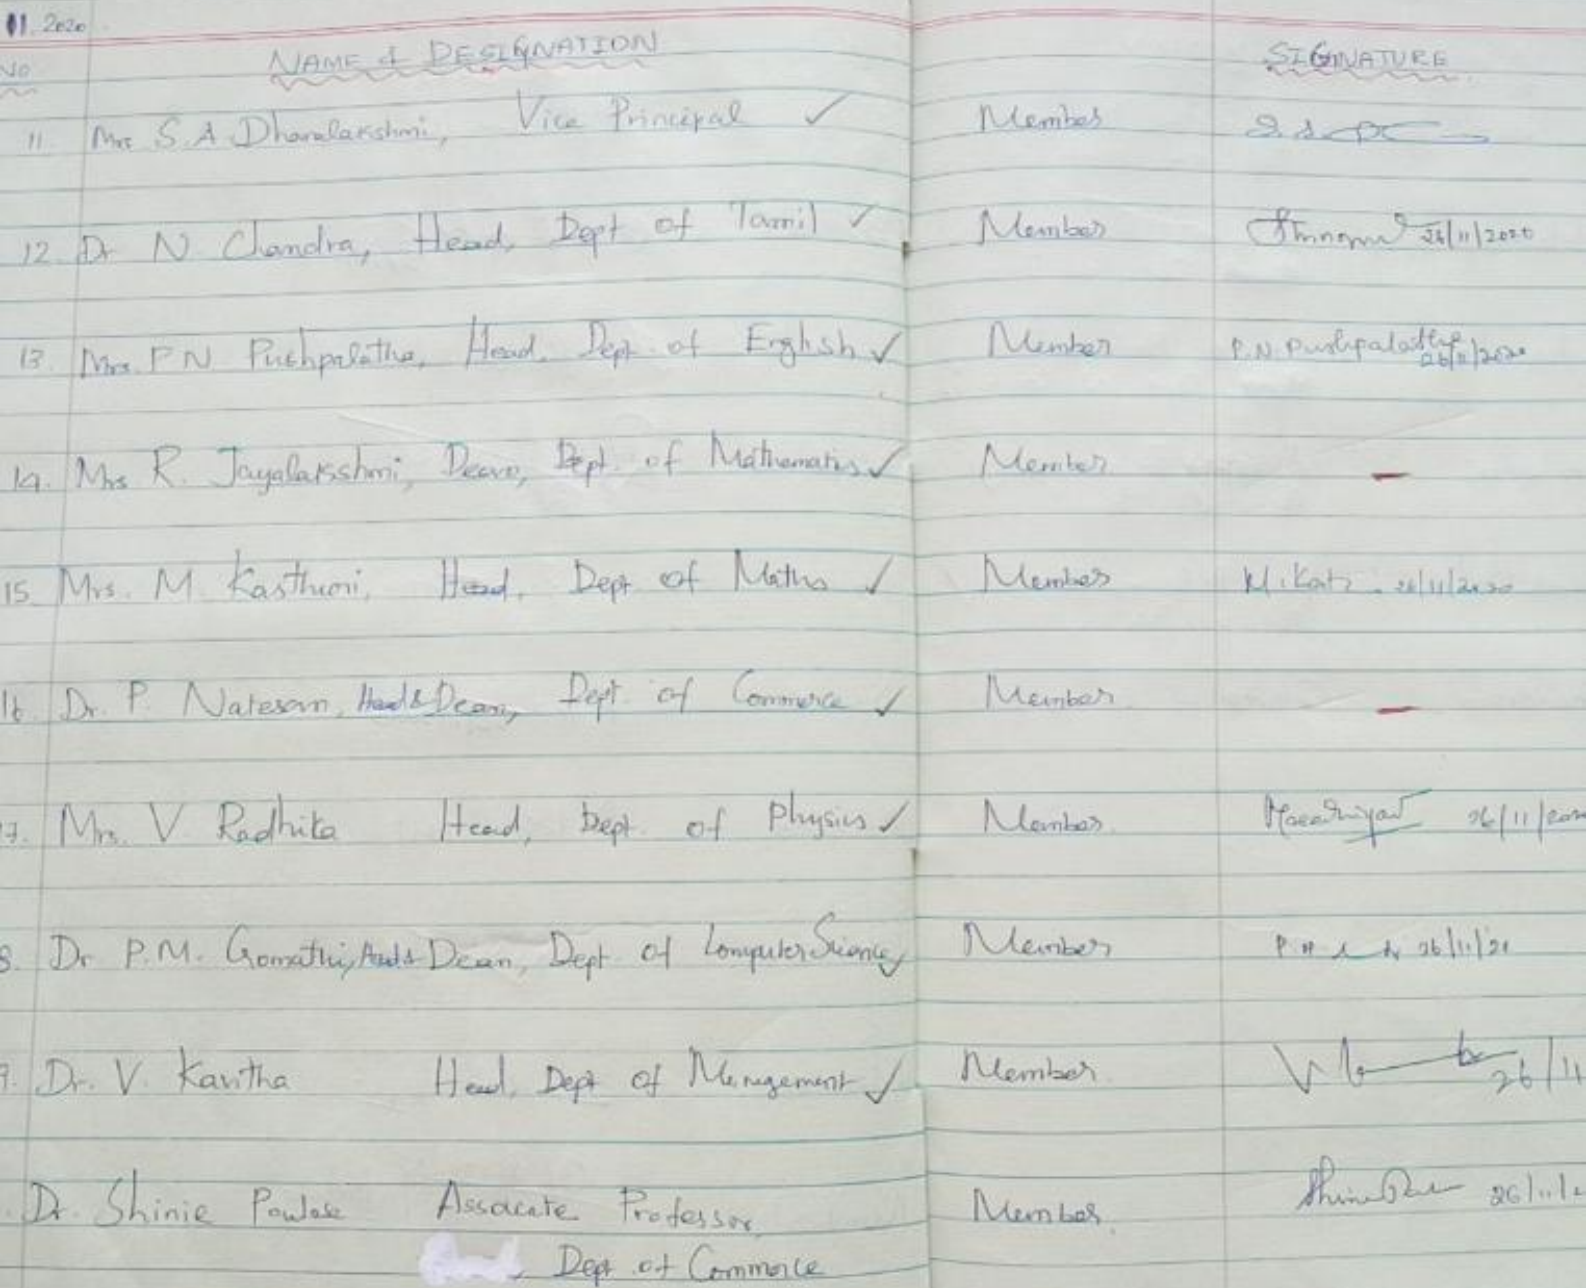 11.2020
No NAME & DESIGNATION SIGNATURE
11 Mrs S.A Dhanalakshmi, Vice Principal ✓ Member
12. Dr N. Chandra, Head, Dept of Tamil ✓ Member 26/11/2020
13. Mrs. P N Pushpalatha, Head, Dept. of English ✓ Member P.N. Pushpalatha
26/11/2020
14. Mrs R. Jayalakshmi, Dean, Dept. of Mathematics ✓ Member –
15 Mrs. M Kasthuri, Head, Dept of Maths ✓ Member 26/11/2020
16 Dr. P Natesan, Head & Dean, Dept of Commerce ✓ Member –
17. Mrs. V Radhika Head, Dept. of Physics ✓ Member 26/11/202
8. Dr P.M. Gomathi, Head & Dean, Dept of Computer Science ✓ Member 26/11/20
9. Dr. V. Kavitha Head, Dept of Management ✓ Member 26/11
Dr. Shinie Poulose Assocate Professor, Member 26/11/2
Dept of Commerce